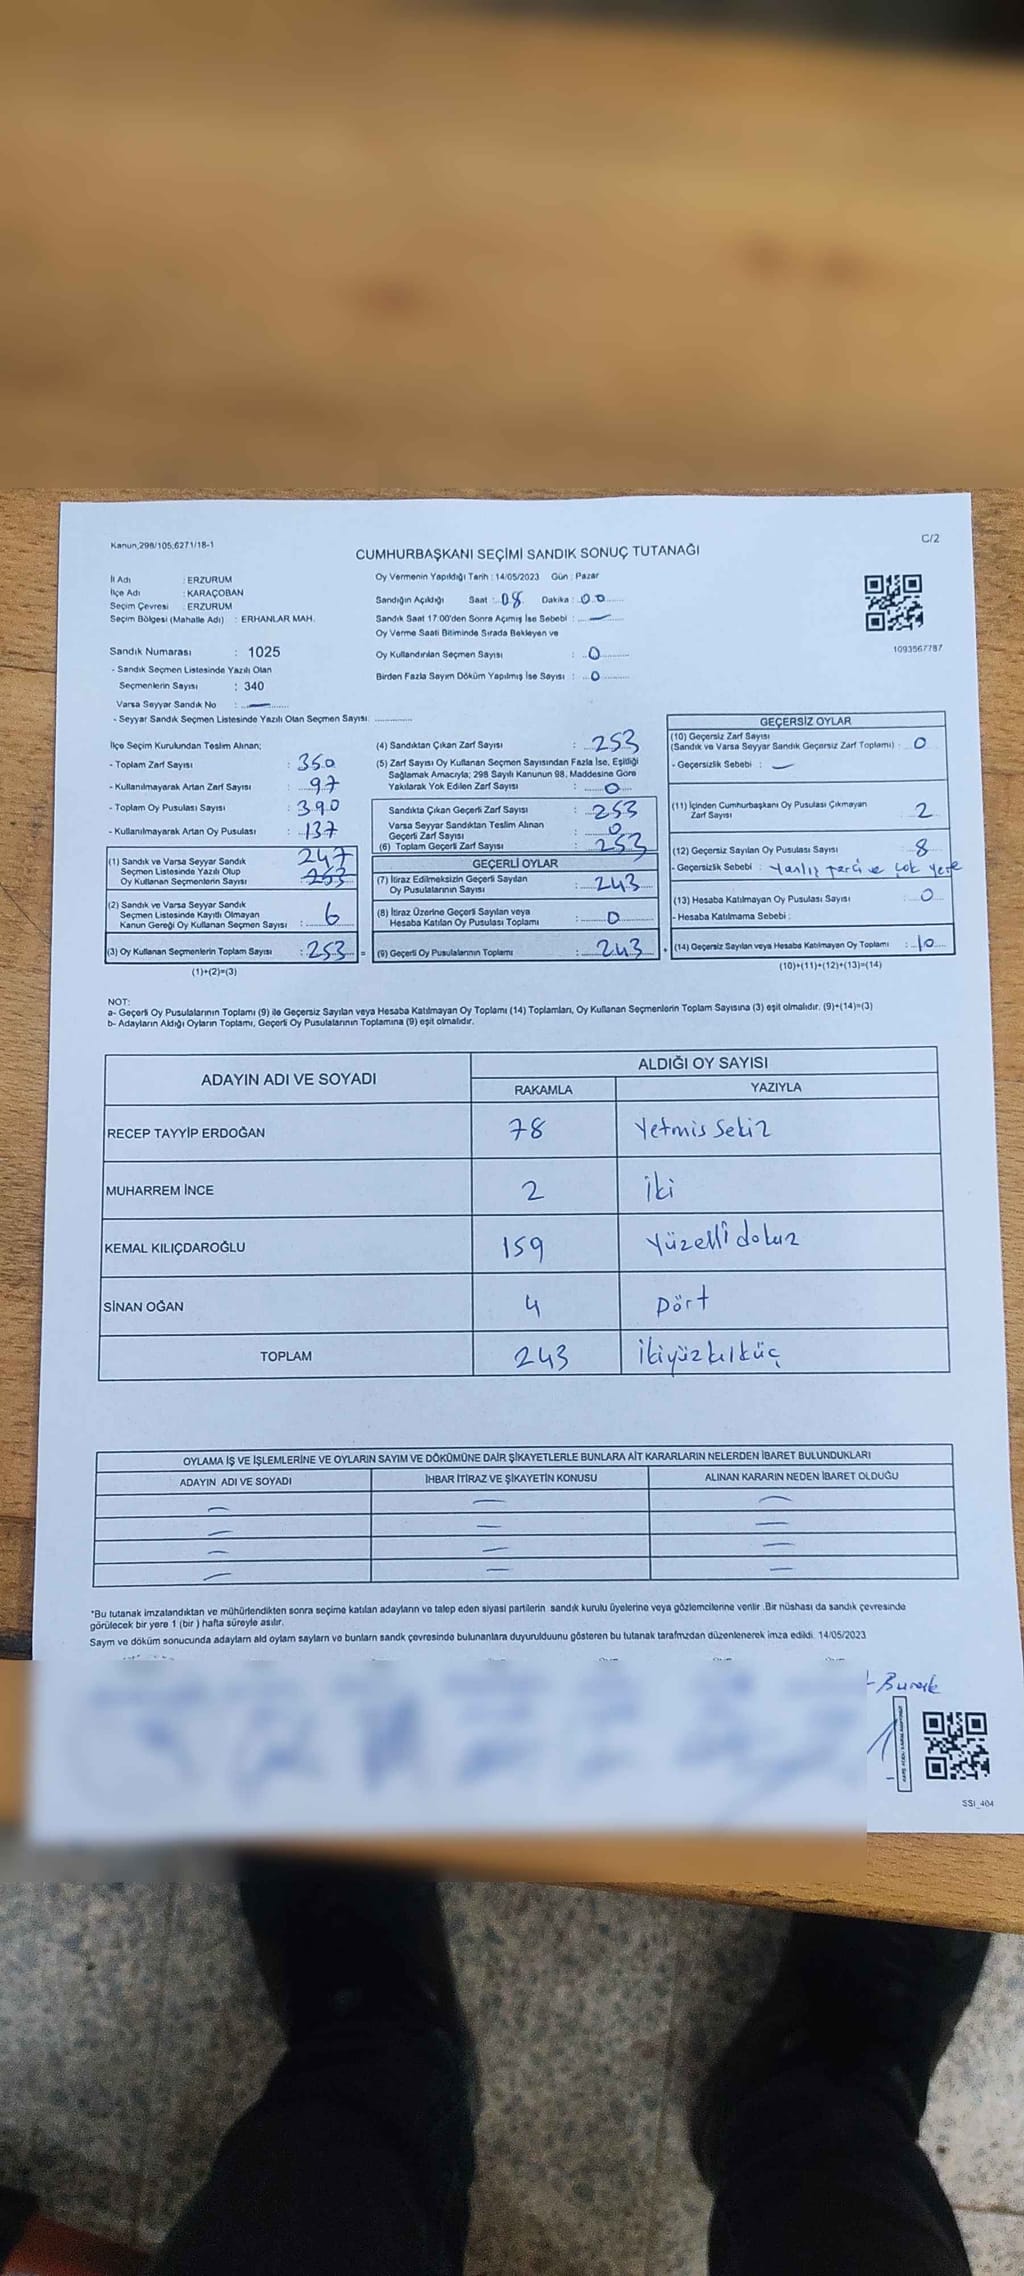 Kanun,298/105,6271/18-1
C/2
CUMHURBAŞKANI SEÇİMİ SANDIK SONUÇ TUTANAĞI
İl Adı : ERZURUM
İlçe Adı : KARAÇOBAN
Seçim Çevresi : ERZURUM
Seçim Bölgesi (Mahalle Adı) : ERHANLAR MAH.
Sandık Numarası : 1025
- Sandık Seçmen Listesinde Yazılı Olan
Seçmenlerin Sayısı : 340
Varsa Seyyar Sandık No :
- Seyyar Sandık Seçmen Listesinde Yazılı Olan Seçmen Sayısı:
Oy Vermenin Yapıldığı Tarih : 14/05/2023 Gün : Pazar
Sandığın Açıldığı Saat : 08 Dakika : 00
Sandık Saat 17:00'den Sonra Açımış İse Sebebi : —
Oy Verme Saati Bitiminde Sırada Bekleyen ve
Oy Kullandırılan Seçmen Sayısı : 0
Birden Fazla Sayım Döküm Yapılmış İse Sayısı : 0
1093567787
İlçe Seçim Kurulundan Teslim Alınan;
- Toplam Zarf Sayısı : 350
- Kullanılmayarak Artan Zarf Sayısı : 97
- Toplam Oy Pusulası Sayısı : 390
- Kullanılmayarak Artan Oy Pusulası : 137
(1) Sandık ve Varsa Seyyar Sandık
Seçmen Listesinde Yazılı Olup
Oy Kullanan Seçmenlerin Sayısı 247
253
(2) Sandık ve Varsa Seyyar Sandık
Seçmen Listesinde Kayıtlı Olmayan
Kanun Gereği Oy Kullanan Seçmen Sayısı : 6
(3) Oy Kullanan Seçmenlerin Toplam Sayısı : 253 =
(1)+(2)=(3)
(4) Sandıktan Çıkan Zarf Sayısı : 253
(5) Zarf Sayısı Oy Kullanan Seçmen Sayısından Fazla İse, Eşitliği
Sağlamak Amacıyla; 298 Sayılı Kanunun 98. Maddesine Göre
Yakılarak Yok Edilen Zarf Sayısı : 0
Sandıkta Çıkan Geçerli Zarf Sayısı : 253
Varsa Seyyar Sandıktan Teslim Alınan
Geçerli Zarf Sayısı : 0
(6) Toplam Geçerli Zarf Sayısı : 253
GEÇERLİ OYLAR
(7) İtiraz Edilmeksizin Geçerli Sayılan
Oy Pusulalarının Sayısı : 243
(8) İtiraz Üzerine Geçerli Sayılan veya
Hesaba Katılan Oy Pusulası Toplamı : 0
(9) Geçerli Oy Pusulalarının Toplamı : 243 +
GEÇERSİZ OYLAR
(10) Geçersiz Zarf Sayısı
(Sandık ve Varsa Seyyar Sandık Geçersiz Zarf Toplamı) : 0
- Geçersizlik Sebebi : —
(11) İçinden Cumhurbaşkanı Oy Pusulası Çıkmayan
Zarf Sayısı 2
(12) Geçersiz Sayılan Oy Pusulası Sayısı : 8
- Geçersizlik Sebebi : Yanlış parti ve çok yere
(13) Hesaba Katılmayan Oy Pusulası Sayısı : 0
- Hesaba Katılmama Sebebi :
(14) Geçersiz Sayılan veya Hesaba Katılmayan Oy Toplamı : 10
(10)+(11)+(12)+(13)=(14)
NOT:
a- Geçerli Oy Pusulalarının Toplamı (9) ile Geçersiz Sayılan veya Hesaba Katılmayan Oy Toplamı (14) Toplamları, Oy Kullanan Seçmenlerin Toplam Sayısına (3) eşit olmalıdır. (9)+(14)=(3)
b- Adayların Aldığı Oyların Toplamı, Geçerli Oy Pusulalarının Toplamına (9) eşit olmalıdır.
ADAYIN ADI VE SOYADI ALDIĞI OY SAYISI
RAKAMLA YAZIYLA
RECEP TAYYİP ERDOĞAN 78 Yetmis Sekiz
MUHARREM İNCE 2 İki
KEMAL KILIÇDAROĞLU 159 Yüzelli dokuz
SİNAN OĞAN 4 Dört
TOPLAM 243 İkiyüzkırküç
OYLAMA İŞ VE İŞLEMLERİNE VE OYLARIN SAYIM VE DÖKÜMÜNE DAİR ŞİKAYETLERLE BUNLARA AİT KARARLARIN NELERDEN İBARET BULUNDUKLARI
ADAYIN ADI VE SOYADI İHBAR İTİRAZ VE ŞİKAYETİN KONUSU ALINAN KARARIN NEDEN İBARET OLDUĞU
*Bu tutanak imzalandıktan ve mühürlendikten sonra seçime katılan adayların ve talep eden siyasi partilerin sandık kurulu üyelerine veya gözlemcilerine verilir .Bir nüshası da sandık çevresinde
görülecek bir yere 1 (bir ) hafta süreyle asılır.
Sayım ve döküm sonucunda adayların ald oyların sayları ve bunların sandk çevresinde bulunanlara duyurulduunu gösteren bu tutanak tarafmzdan düzenlenerek imza edildi. 14/05/2023
Burak
SSI_404